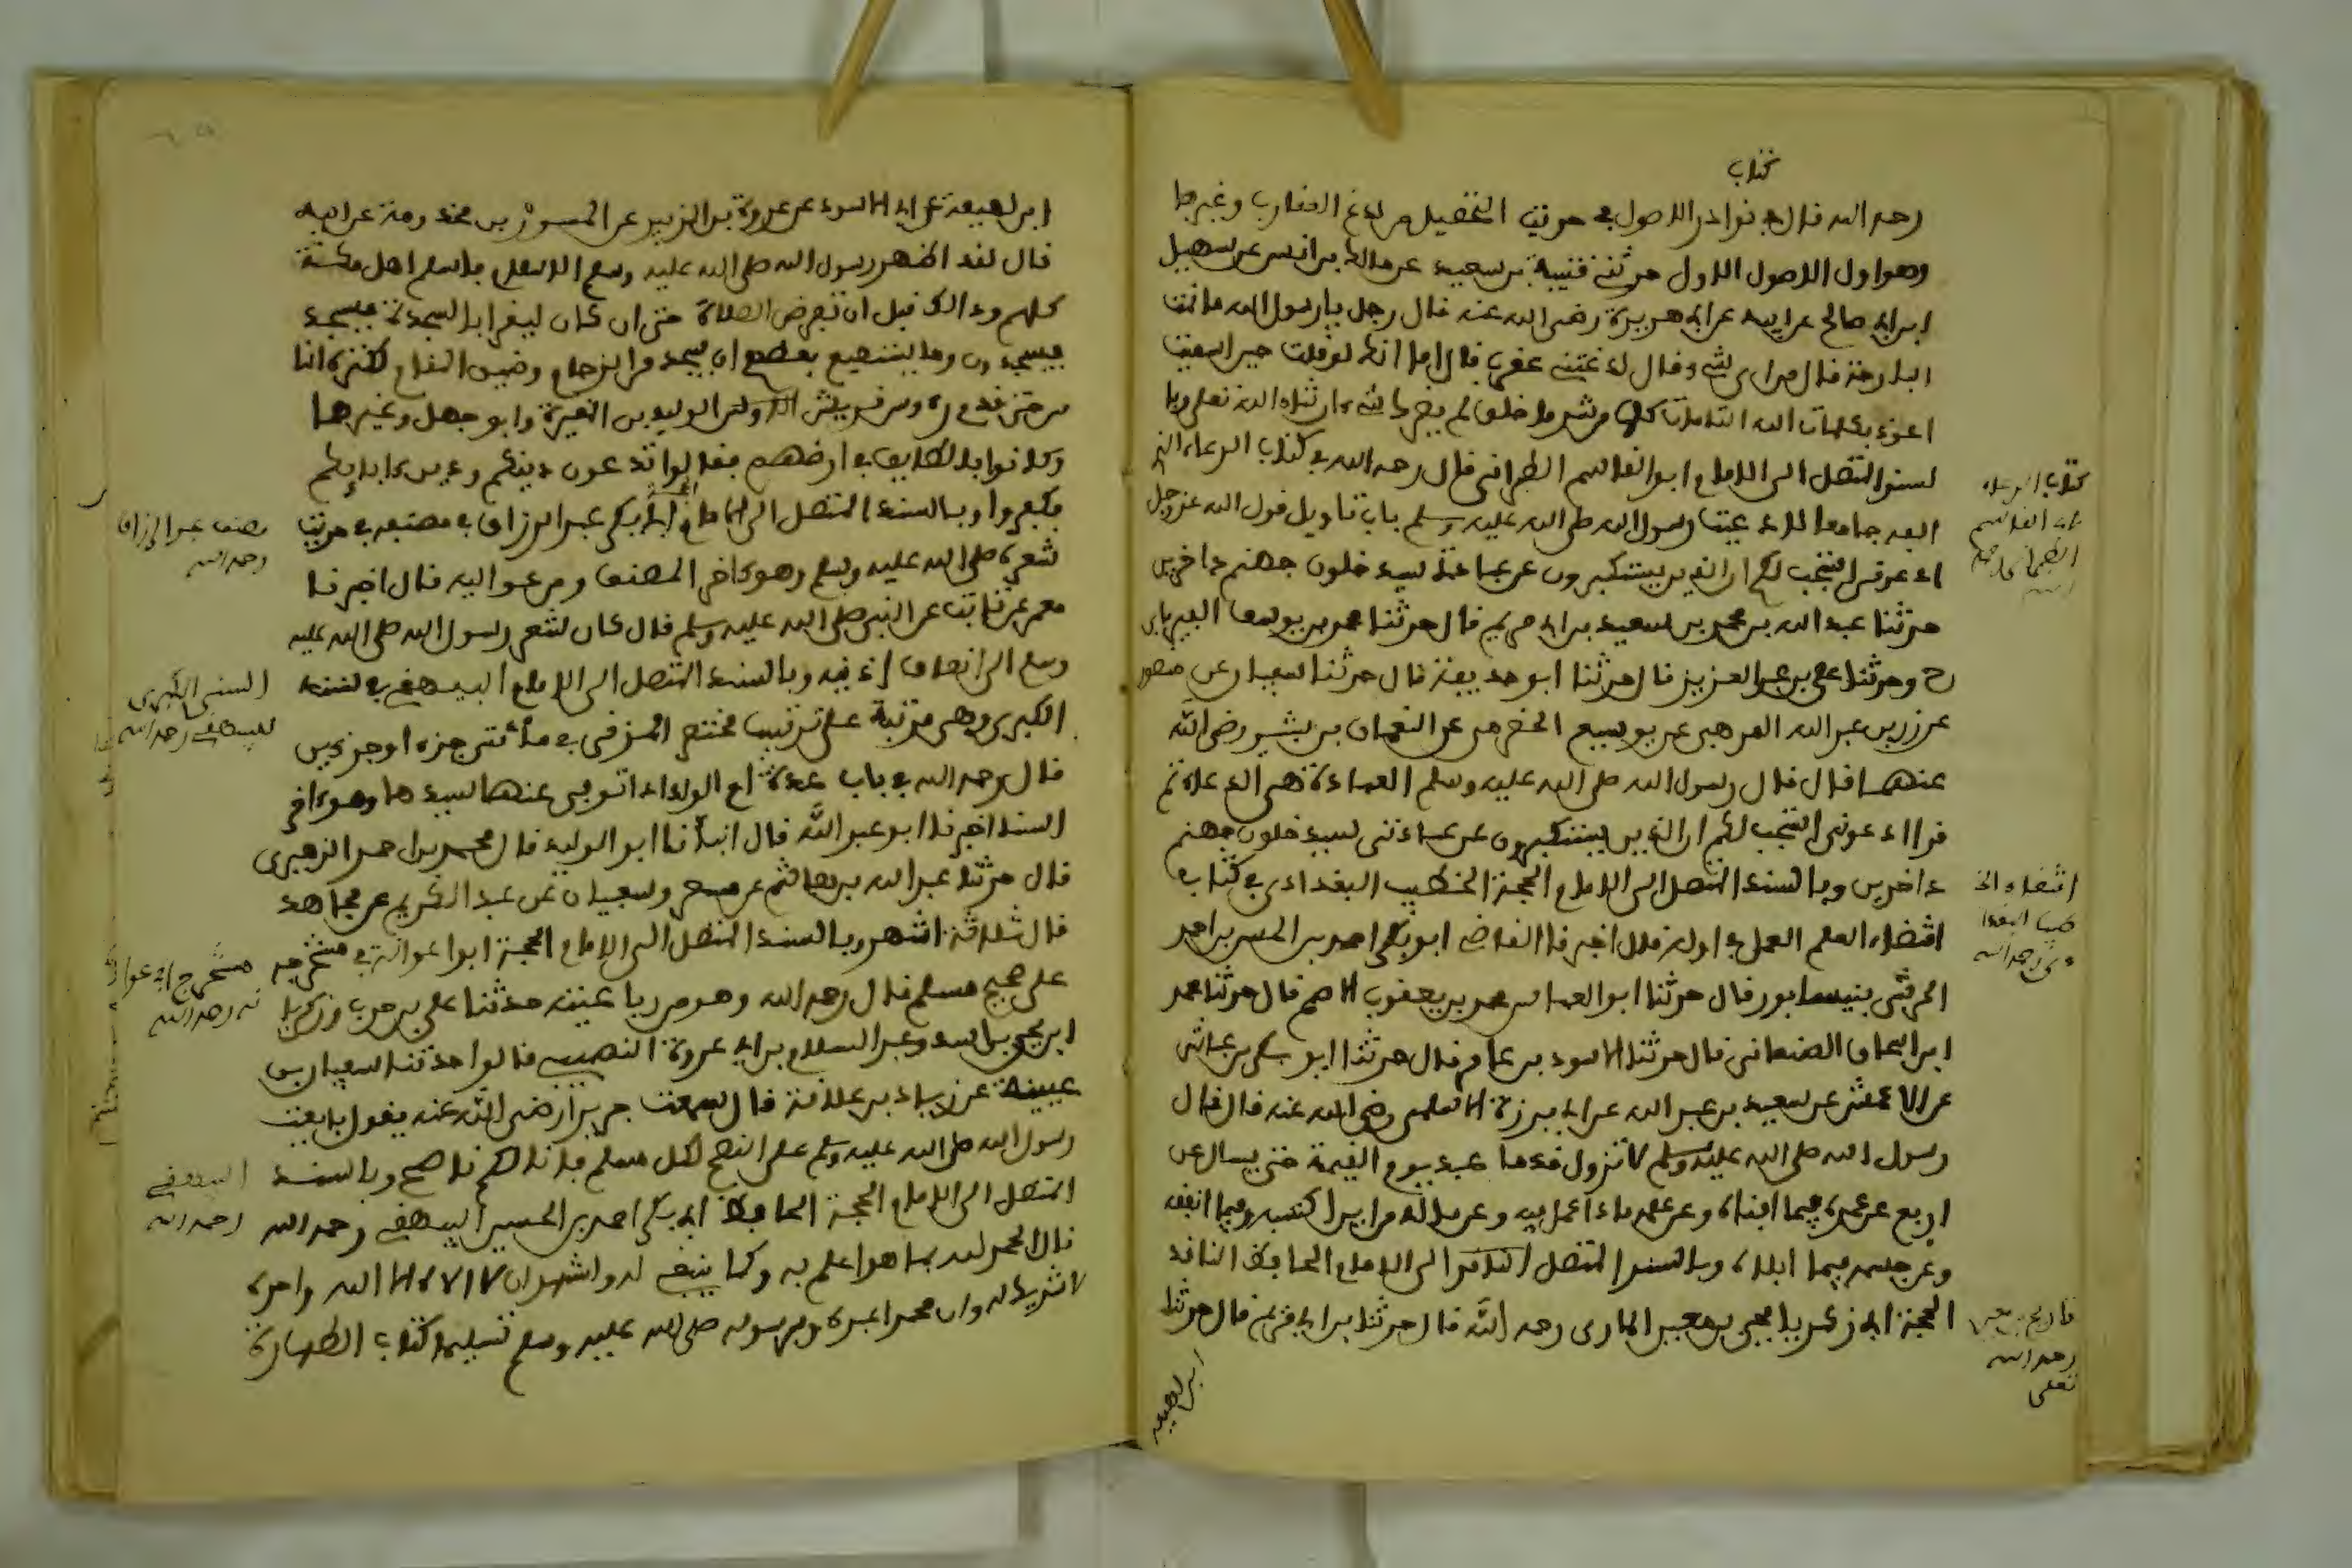 كتاب
رحمه الله قال في نوادر الاصول في حديث التحصيل من لدغ العقارب وغيرها
وهو اول الاصول الاول حدثنا قتيبة بن سعيد عن مالك بن انس عن سهيل
ابن ابي صالح عن ابيه عن ابي هريرة رضي الله عنه قال رجل يا رسول الله ما نمت
البارحة قال من اي شيء فقال لدغتني عقرب قال اما انك لو قلت حين امسيت
اعوذ بكلمات الله التامات كلها من شر ما خلق لم يضرك شيء ان شاء الله تعلى وبا
لسند المتصل الى الامام ابو القاسم الطبراني قال رحمه الله في كتاب الدعاء الذي
الفه جامعا لادعية رسول الله صلى الله عليه وسلم باب تاويل قول الله عز وجل
ادعوني استجب لكم ان الذين يستكبرون عن عبادتي سيدخلون جهنم داخرين
حدثنا عبد الله بن محمد بن سعيد بن ابي مريم قال حدثنا محمد بن يوسف الفريابي
ح وحدثنا علي بن عبد العزيز قال حدثنا ابو حذيفة قال حدثنا سفيان عن منصور
عن ذر بن عبد الله المرهبي عن يوسيع الحضرمي عن النعمان بن بشير رضي الله
عنهما قال قال رسول الله صلى الله عليه وسلم العبادة هي الدعاء ثم
قرا ادعوني استجب لكم ان الذين يستكبرون عن عبادتي سيدخلون جهنم
داخرين وبالسند المتصل الى الامام الحجة الخطيب البغدادي في كتابه
اقتضاء العلم العمل في اوله قال اخبرنا القاضي ابو بكر احمد بن الحسن بن احمد
الحرشي بنيسابور قال حدثنا ابو العباس محمد بن يعقوب الاصم قال حدثنا محمد
ابن اسحاق الصنعاني قال حدثنا الاسود بن عامر قال حدثنا ابو بكر بن عياش
عن الاعمش عن سعيد بن عبد الله عن ابي برزة الاسلمي رضي الله عنه قال قال
رسول الله صلى الله عليه وسلم لا تزول قدما عبد يوم القيمة حتى يسال عن
اربع عن عمره فيما افناه وعن علمه ماذا عمل فيه وعن ماله من اين اكتسبه وفيما انفقه
وعن جسمه فيما ابلاه وبالسند المتصل الى الامام الحافظ الناقد
الحجة ابي زكرياء يحيى بن معين المري رحمه الله قال حدثنا بن ابي مريم قال حدثنا
ابن لهيعة
كتاب الدعاء
لابي القاسم
الطبراني رحمه
الله
اقتضاء الخ
طيب البغدا
دي رحمه الله
تاريخ بن معين
رحمه الله
تعلى
ابن لهيعة عن ابي الاسود عن عروة بن الزبير عن المسور بن مخرمة عن ابيه
قال لقد اظهر رسول الله صلى الله عليه وسلم الاسلام فاسلم اهل مكة
كلهم وذالك قبل ان تفرض الصلاة حتى ان كان ليقرا بالسجدة فيسجد
فيسجدون وما يستطيع بعضهم ان يسجد من الزحام وضيق المقام لكثرة النا
س حتى قدم رءوس قريش الوليد بن المغيرة وابو جهل وغيرهما
وكانوا بالطايف في ارضهم فقالوا تدعون دينكم ودين ءابايكم
فكفروا وبالسند المتصل الى الامام ابي بكر عبد الرزاق في مصنفه في حديث
شعره صلى الله عليه وسلم وهو ءاخر المصنف ومرفوعاليه قال اخبرنا
معمر عن ثابت عن النبي صلى الله عليه وسلم قال كان شعر رسول الله صلى الله عليه
وسلم الى انصاف اذنيه وبالسند المتصل الى الامام البيهقي في سننه
الكبرى وهي مرتبة على ترتيب مختصر المزني في مائتي جزء او جزءين
قال رحمه الله في باب عدة ام الولد اذا توفي عنها سيدها وهو ءاخر
السند اخبرنا ابو عبد الله قال انبأنا ابو الوليد قال محمد بن احمد الزهيري
قال حدثنا عبد الله بن هاشم عن مسعر وسفيان عن عبد الكريم عن مجاهد
قال ثلاثة اشهر وبالسند المتصل الى الامام الحجة ابو عوانة في مستخرجه
على صحيح مسلم قال رحمه الله وهو من رباعيته حدثنا علي بن حرب وزكرياء
ابن يحيى بن اسد وعبد السلام بن ابي عروة النصيبي قالوا حدثنا سفيان بن
عيينة عن زياد بن علاقة قال سمعت جريرا رضي الله عنه يقول بايعت
رسول الله صلى الله عليه وسلم على النصح لكل مسلم فانا لكم ناصح وبالسند
المتصل الى الامام الحجة الحافظ ابي بكر احمد بن الحسين البيهقي رحمه الله
قال الحمد لله بما هو اعلم به وكما ينبغي له واشهد ان لا اله الا الله وحده
لا شريك له وان محمدا عبده ورسوله صلى الله عليه وسلم تسليما كتاب الطهارة
مصنف عبد الرزاق
رحمه الله
السنن الكبرى
للبيهقي رحمه الله
مستخرج ابي عوا
نه رحمه الله
البيهقي
رحمه الله